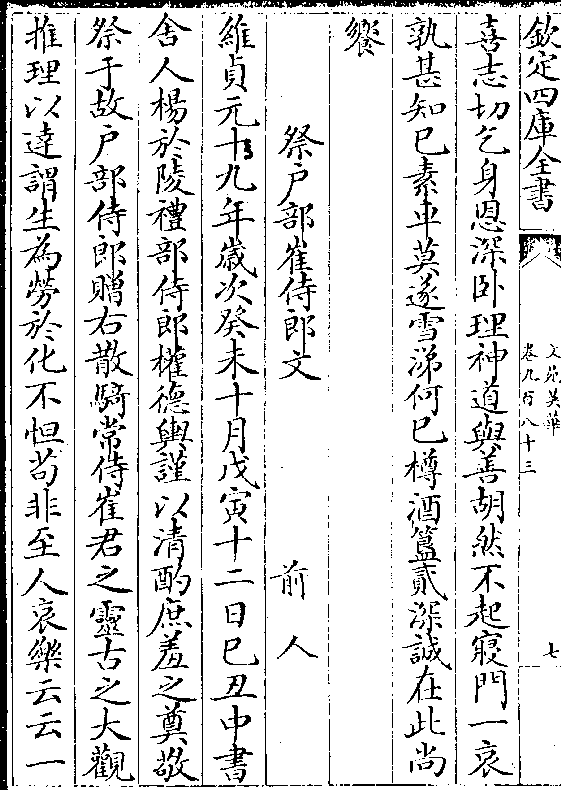 欽定四庫全書
文苑英華
卷九百八十三
七
喜志切乞身恩深卧理神道與善胡然不起寢門一哀
孰甚知已素車莫遂雪涕何已樽酒簋貳深誠在此尚
饗
祭户部崔侍郎文
前人
維貞元十九年嵗次癸未十月戊寅十二日已丑中書
舍人楊於陵禮部侍郎權德輿謹以清酌庶羞之奠敬
祭于故户部侍郎贈右散騎常侍崔君之靈古之大觀
推理以達謂生為勞於化不怛苟非至人哀樂云云一